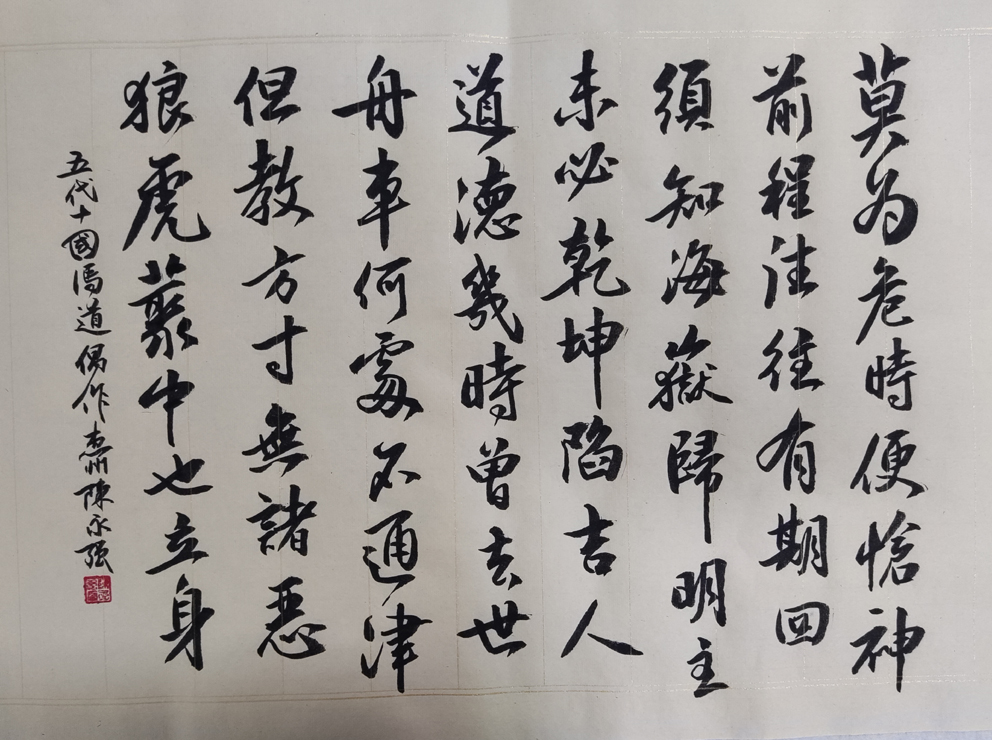 莫为危時便愴神
前程往往有期回
須知海嶽歸明主
未必乾坤陷吉人
道德幾時曾去世
舟車何處不通津
但教方寸無諸惡
狼虎叢中也立身
五代十國馮道偶作惠州陳永强